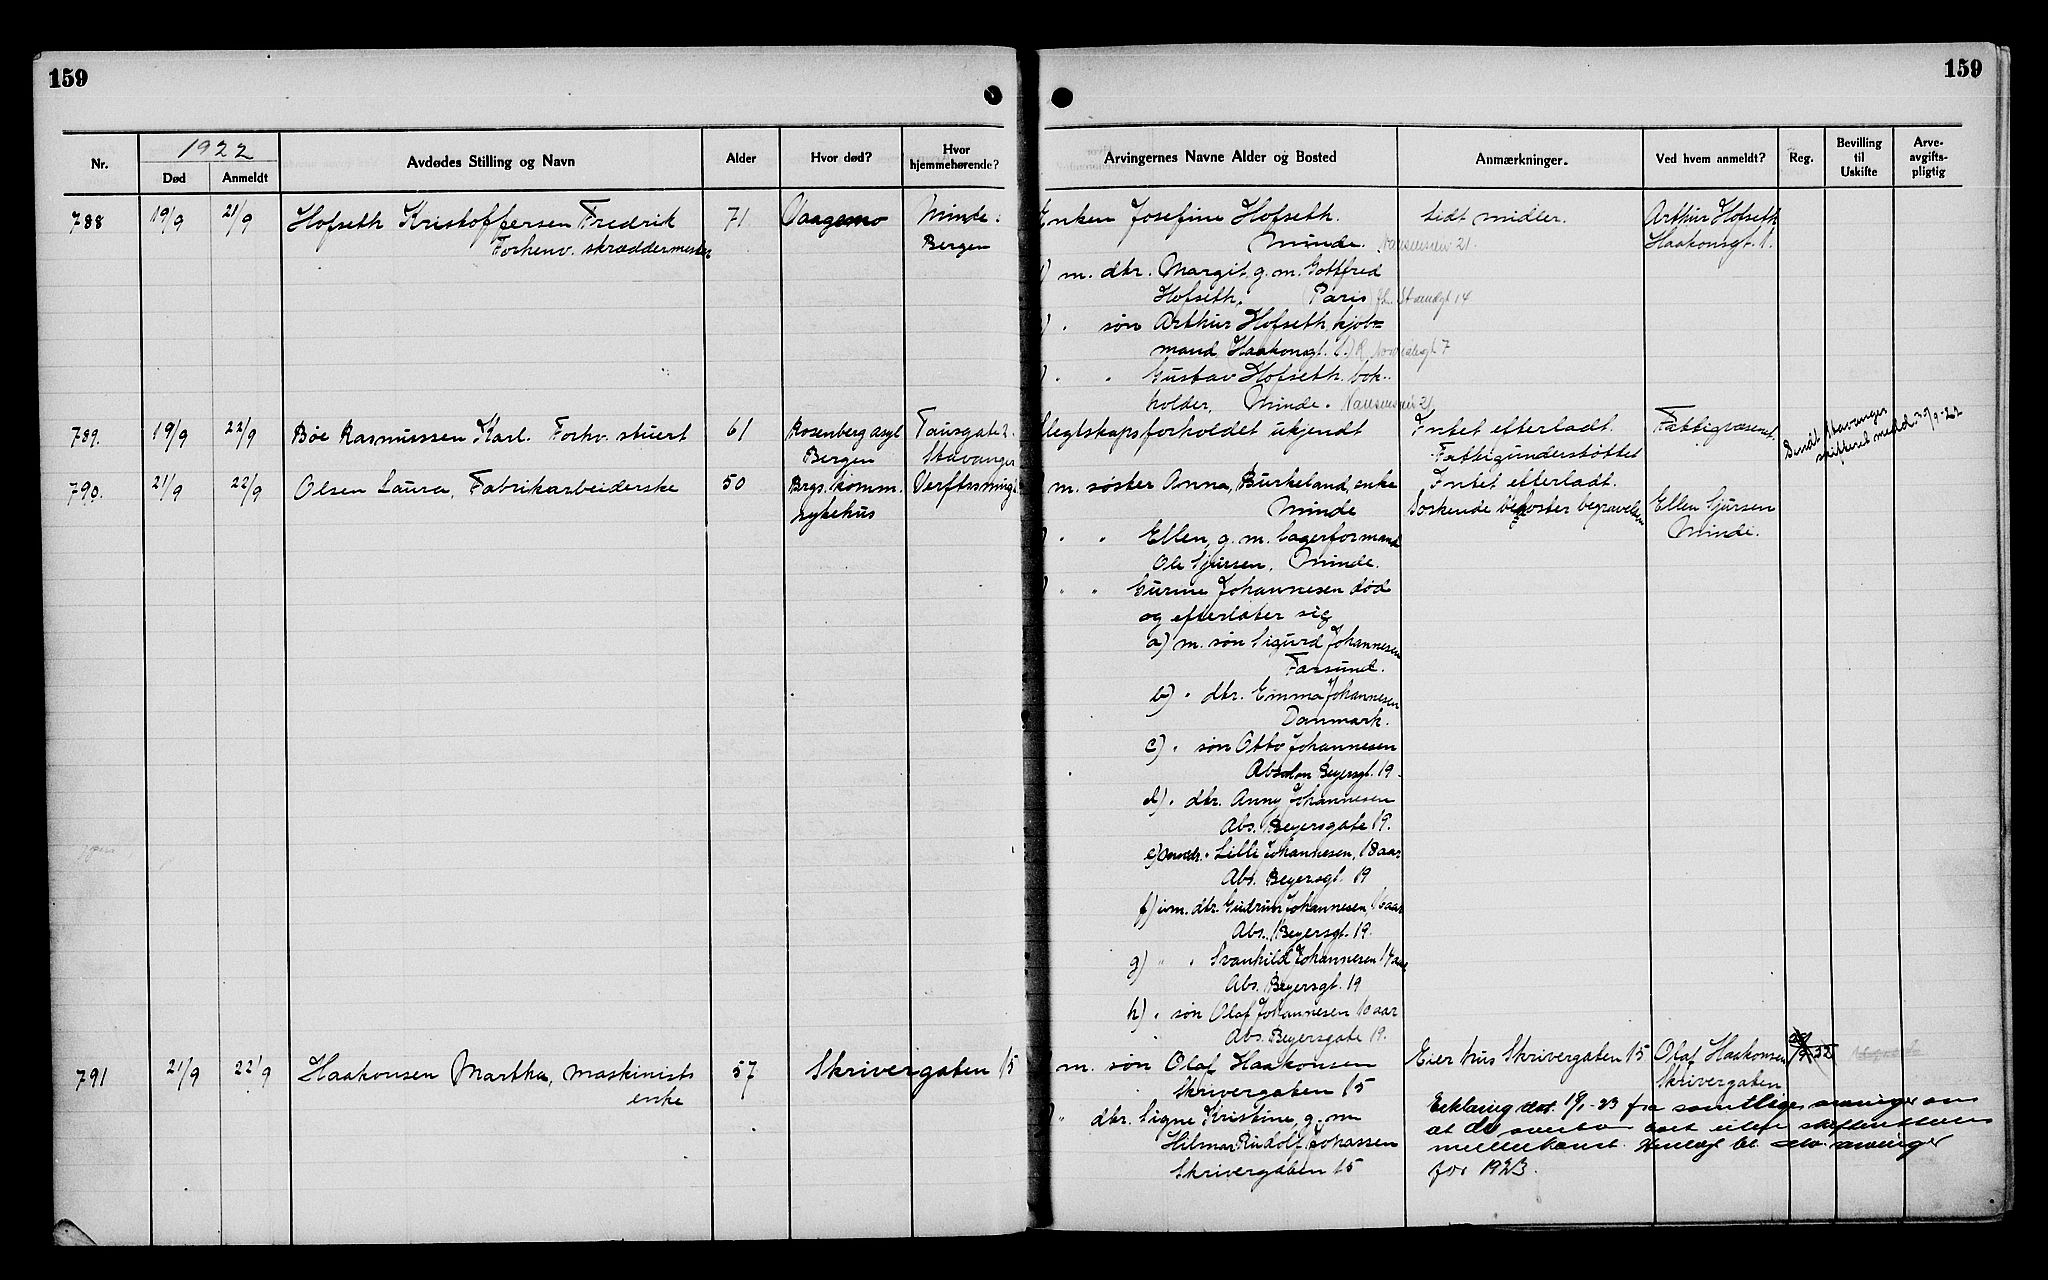 159
159
Nr.
1922
Død
Anmeldt
Avdødes Stilling og Navn
Alder
Hvor død?
Hvor hjemmehørende?
Arvingernes Navne Alder og Bosted
Anmærkninger.
Ved hvem anmeldt?
Reg.
Bevilling til Uskifte
Arve-avgifts-pligtig
788 19/9 21/9 Hofseth Kristoffersen Fredrik 71 Vaagemo Minde.
Forhenv. skræddermester Bergen
Enken Josefine Hofseth. lidt midler. Arthur Hofseth
Minde. Nansensvei 21. Haakonsgt. 1.
m. dtr. Margit, g. m. Gottfred
Hofseth. (Paris) Strandgt 14
" søn Arthur Hofseth, kjøb=
mand Haakonsgt. 1.
" " Gustav Hofseth. bok-
holder, Minde. Nansensvei 21
789. 19/9 22/9 Bøe Rasmussen Karl. Forhv. stuert 61 Rosenberg asyl
Bergen Stavanger
Slegtskapsforholdet ukjendt Intet efterladt. Fattigvæsenet.
Fattigunderstøttet
Sendt Stavanger
skifteret medd. 30/9-22
790. 21/9 22/9 Olsen Laura, Fabrikarbeiderske 50 Brgs. komm.
sykehus
m. søster Anna, Burkeland, enke Intet efterladt.
Minde Søskende bekoster begravelsen Ellen Sjursen
Minde.
" " Ellen, g. m. lagerformand
Ole Sjursen, Minde.
" " Gurine Johannesen død
og efterlater sig
a) m. søn Sigurd Johannesen
Farsund.
b) " dtr. Emma Johannesen
Danmark.
c) " søn Otto Johannesen
Absalon Beyersgt. 19
d) " dtr. Anny Johannesen
Abs. Beyersgate 19.
e) " Lilli Johannesen, 18 aar
Abs. Beyersgt. 19
f) um. dtr. Gudrun Johannesen, 16 aar
Abs. Beyersgt. 19.
g) " " Svanhild Johannesen 14 aar
Abs. Beyersgt. 19
h) " søn Olaf Johannesen 10 aar
Abs. Beyersgate 19.
791 21/9 22/9 Haakonsen Martha, maskinists 57 Skrivergaten 15
enke
m. søn Olaf Haakonsen Eier hus Skrivergaten 15 Olaf Haakonsen
Skrivergaten 15 Skrivergaten
" dtr. Signe Kristine, g. m.
Hilmar Rudolf Johassen
Skrivergaten 15
Erklæring dat. 19/1-23 fra samtlige arvinger om
at de overtar boet uten skifterettens
mellemkomst. Henlagt bl. arvinger
for 1923.